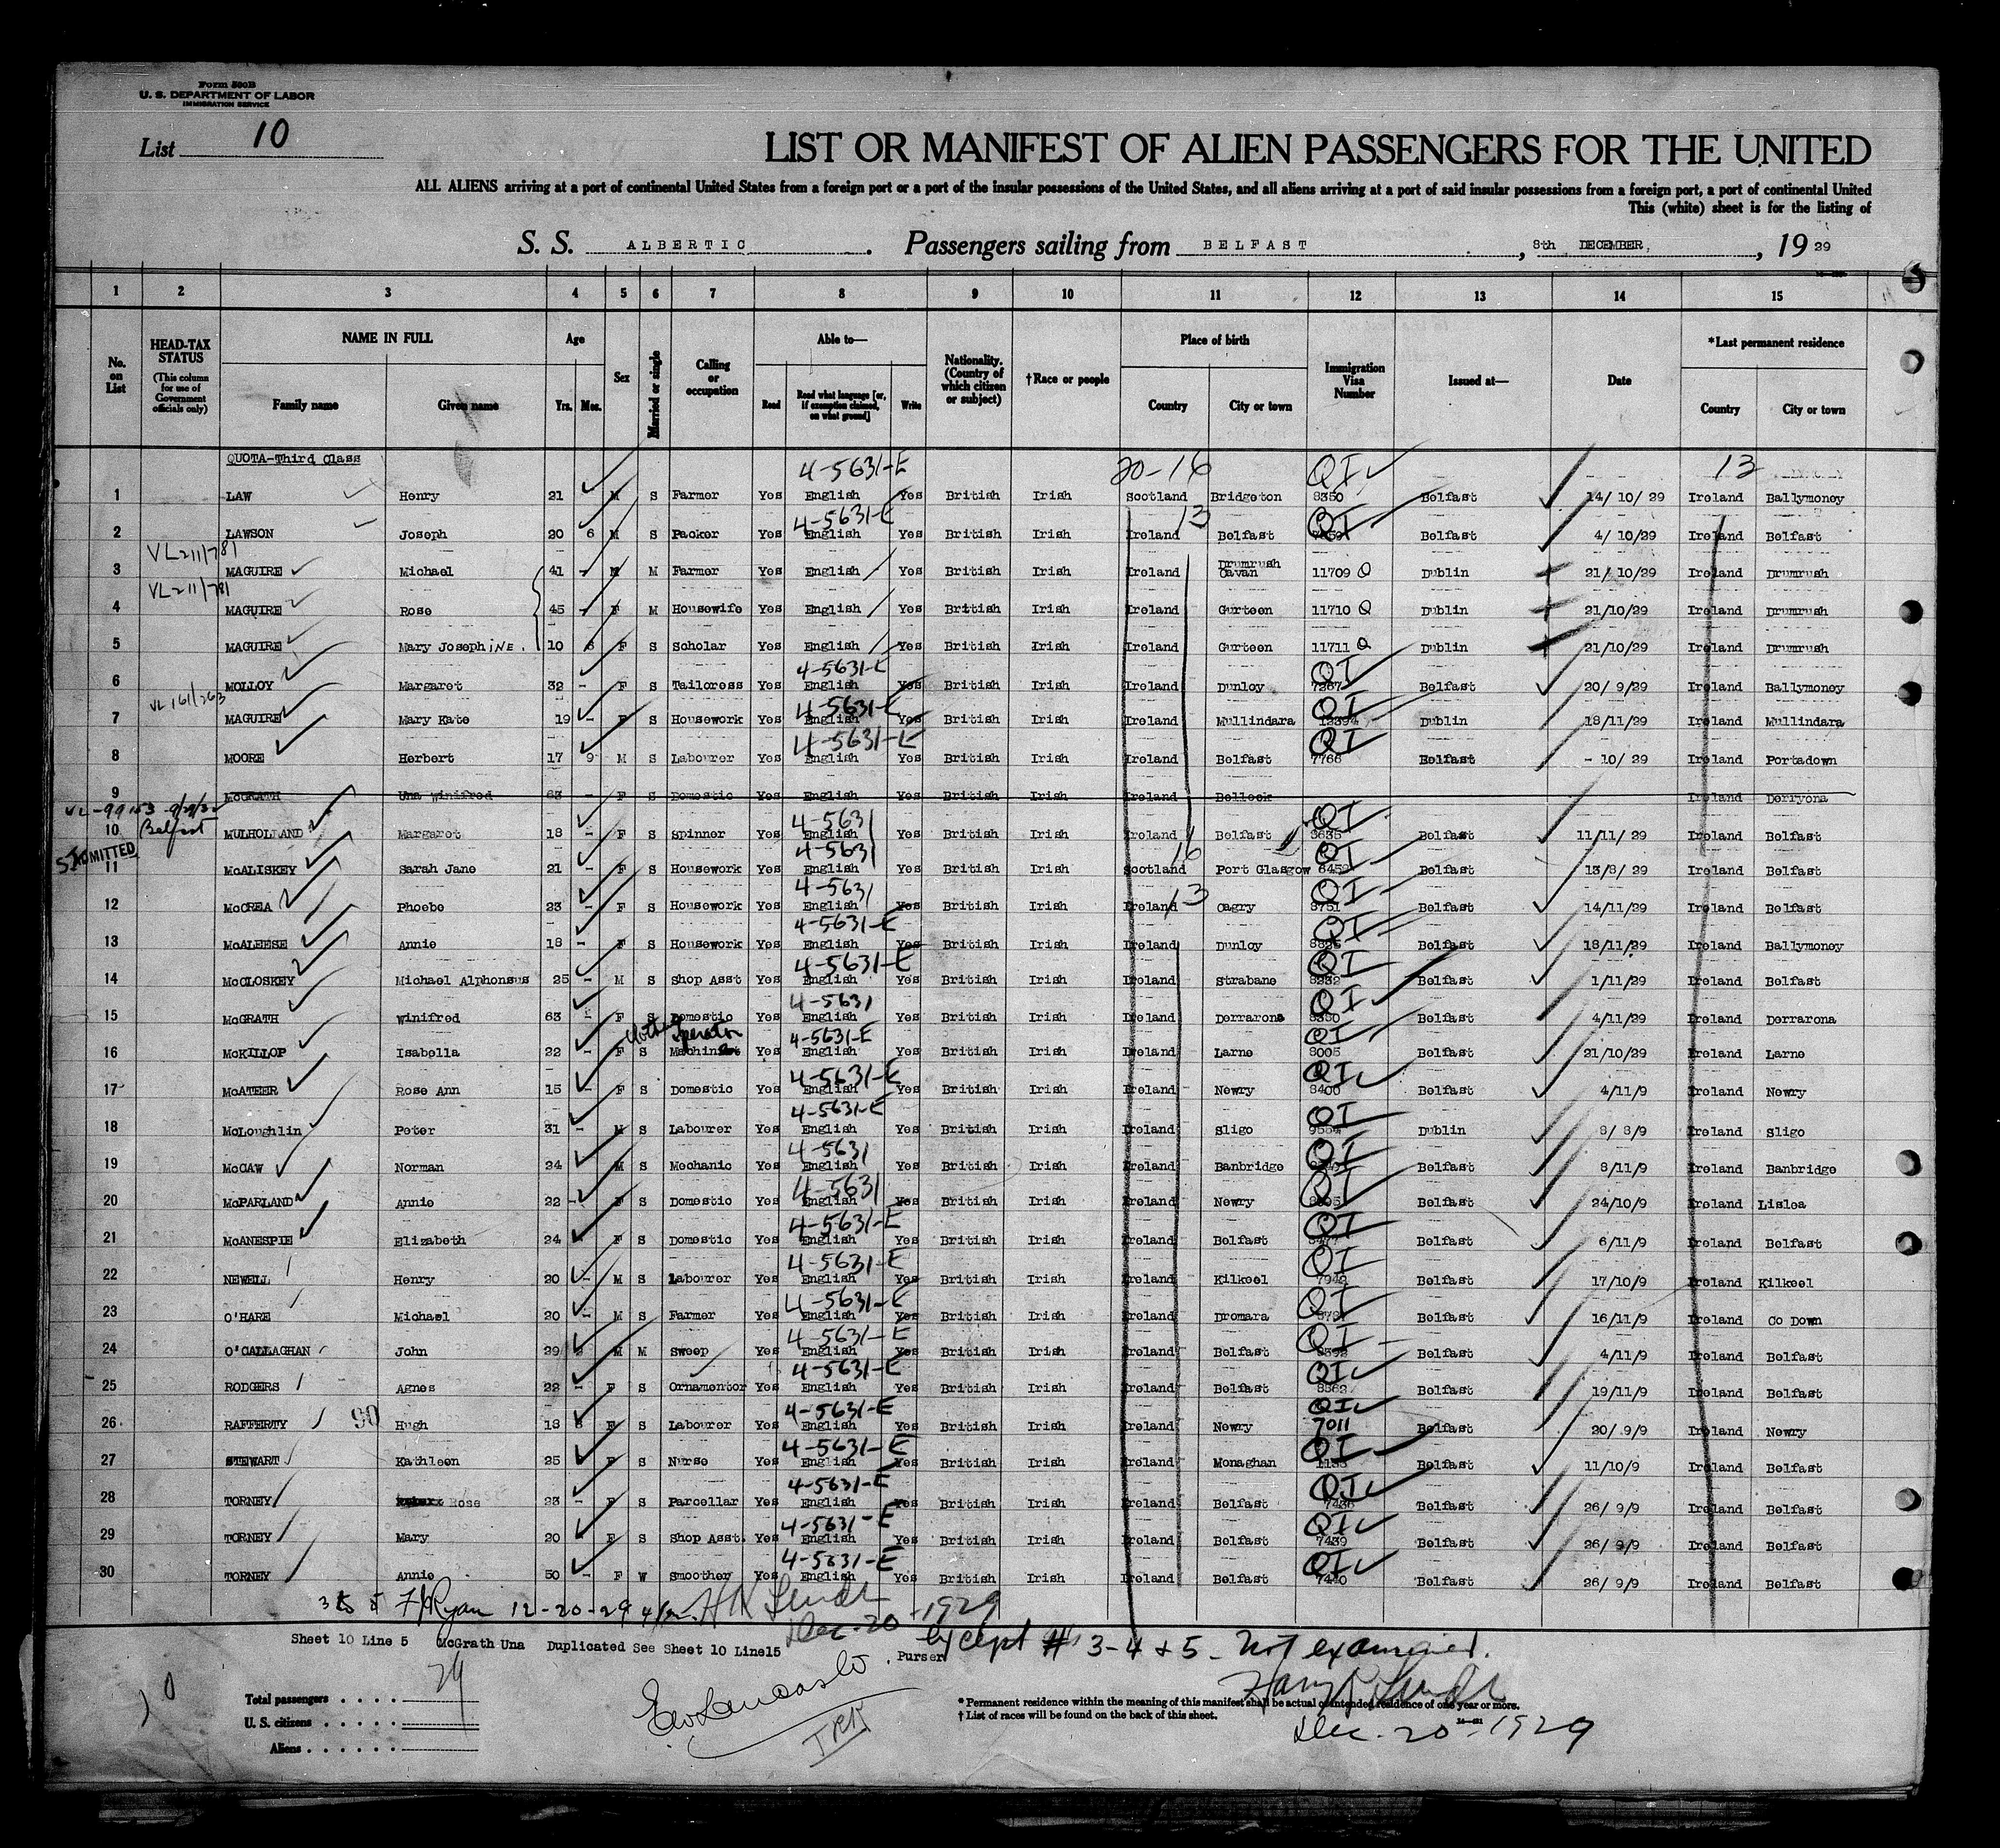 Form 500B
U. S. DEPARTMENT OF LABOR
IMMIGRATION SERVICE
List 10
LIST OR MANIFEST OF ALIEN PASSENGERS FOR THE UNITED
ALL ALIENS arriving at a port of continental United States from a foreign port or a port of the insular possessions of the United States, and all aliens arriving at a port of said insular possessions from a foreign port, a port of continental United
This (white) sheet is for the listing of
S. S. ALBERTIC. Passengers sailing from BELFAST, 8th DECEMBER, 19 29
1 2 3 4 5 6 7 8 9 10 11 12 13 14 15
No. on List
HEAD-TAX STATUS (This column for use of Government officials only)
NAME IN FULL Family name Given name
Age Yrs. Mos.
Sex
Married or single
Calling or occupation
Able to— Read Read what language [or, if exemption claimed, on what ground] Write
Nationality. (Country of which citizen or subject)
†Race or people
Place of birth Country City or town
Immigration Visa Number
Issued at—
Date
*Last permanent residence Country City or town
QUOTA-Third Class 4-5631-E 20-16 QI 13
1 LAW Henry 21 M S Farmer Yes English Yes British Irish Scotland Bridgeton 8350 Belfast 14/ 10/ 29 Ireland Ballymoney
4-5631-E 13 QI
2 LAWSON Joseph 20 6 M S Packer Yes English Yes British Irish Ireland Belfast Belfast 4/ 10/29 Ireland Belfast
VL 211/781
3 MAGUIRE Michael 41 - M M Farmer Yes English Yes British Irish Ireland Drumrush Cavan 11709 Q Dublin 21/ 10/29 Ireland Drumrush
VL 211/781
4 MAGUIRE Rose 45 - F M Housewife Yes English Yes British Irish Ireland Gurteen 11710 Q Dublin 21/10/29 Ireland Drumrush
5 MAGUIRE Mary JosephINE. 10 F S Scholar Yes English Yes British Irish Ireland Gurteen 11711 Q Dublin 21/10/29 Ireland Drumrush
4-5631-E QI
6 MOLLOY Margaret 32 - F S Tailoress Yes English Yes British Irish Ireland Dunloy 7267 Belfast 20/ 9/29 Ireland Ballymoney
VL 161/263 4-5631-E QI
7 MAGUIRE Mary Kate 19 - F S Housework Yes English Yes British Irish Ireland Mullindara 12394 Dublin 18/11/29 Ireland Mullindara
4-5631-E QI
8 MOORE Herbert 17 9 M S Labourer Yes English Yes British Irish Ireland Belfast 7766 Belfast - 10/ 29 Ireland Portadown
9 McGRATH Una Winifred 63 - F S Domestic Yes English Yes British Irish Ireland Belleek Ireland Derryona
VL-99153 9/29/32 Belfast 4-5631 QI
10 MULHOLLAND Margaret 18 - F S Spinner Yes English Yes British Irish Ireland Belfast 8635 Belfast 11/11/ 29 Ireland Belfast
ADMITTED 4-5631 16 QI
11 McALISKEY Sarah Jane 21 - F S Housework Yes English Yes British Irish Scotland Port Glasgow 6452 Belfast 13/8/ 29 Ireland Belfast
4-5631 13 QI
12 McCREA Phoebe 23 - F S Housework Yes English Yes British Irish Ireland Cagry 8751 Belfast 14/11/29 Ireland Belfast
4-5631-E QI
13 McALEESE Annie 18 - F S Housework Yes English Yes British Irish Ireland Dunloy Belfast 18/11/29 Ireland Ballymoney
4-5631-E QI
14 McCLOSKEY Michael Alphonsus 25 - M S Shop Asst Yes English Yes British Irish Ireland Strabane 8232 Belfast 1/11/29 Ireland Belfast
4-5631 QI
15 McGRATH Winifred 63 - F S Domestic Yes English Yes British Irish Ireland Derrarona 8350 Belfast 4/11/29 Ireland Derrarona
operator 4-5631-E QI
16 McKILLOP Isabella 22 - F S Machinist Yes English Yes British Irish Ireland Larne 8005 Belfast 21/10/29 Ireland Larne
4-5631-E QI
17 McATEER Rose Ann 15 - F S Domestic Yes English Yes British Irish Ireland Newry 8400 Belfast 4/11/9 Ireland Newry
4-5631-E QI
18 McLoughlin Peter 31 - M S Labourer Yes English Yes British Irish Ireland Sligo Dublin 8/ 8/9 Ireland Sligo
4-5631 QI
19 McCAW Norman 24 M S Mechanic Yes English Yes British Irish Ireland Banbridge Belfast 8/11/9 Ireland Banbridge
4-5631 QI
20 McPARLAND Annie 22 - F S Domestic Yes English Yes British Irish Ireland Newry Belfast 24/10/9 Ireland Lislea
4-5631-E QI
21 McANESPIE Elizabeth 24 - F S Domestic Yes English Yes British Irish Ireland Belfast Belfast 6/11/9 Ireland Belfast
4-5631-E QI
22 NEWELL Henry 20 - M S Labourer Yes English Yes British Irish Ireland Kilkeel Belfast 17/10/9 Ireland Kilkeel
4-5631-E QI
23 O'HARE Michael 20 - M S Farmer Yes English Yes British Irish Ireland Dromara Belfast 16/11/9 Ireland Co Down
4-5631-E QI
24 O'CALLAGHAN John 29 M M Sweep Yes English Yes British Irish Ireland Belfast Belfast 4/11/9 Ireland Belfast
4-5631-E QI
25 RODGERS Agnes 22 - F S Ornamentor Yes English Yes British Irish Ireland Belfast Belfast 19/11/9 Ireland Belfast
90 4-5631-E QI
26 RAFFERTY Hugh 18 S Labourer Yes English Yes British Irish Ireland Newry 7011 Belfast 20/ 9/9 Ireland Newry
4-5631-E QI
27 STEWART Kathleen 25 F S Nurse Yes English Yes British Irish Ireland Monaghan Belfast 11/10/9 Ireland Belfast
4-5631-E QI
28 TORNEY Rose 23 - F S Parcellar Yes English Yes British Irish Ireland Belfast 7438 Belfast 26/ 9/9 Ireland Belfast
4-5631-E QI
29 TORNEY Mary 20 F S Shop Asst. Yes English Yes British Irish Ireland Belfast 7439 Belfast 26/ 9/9 Ireland Belfast
4-5631-E QI
30 TORNEY Annie 50 - F W Smoother Yes English Yes British Irish Ireland Belfast 7440 Belfast 26/ 9/9 Ireland Belfast
3 to 5 Ryan 12-20-29
Dec. 20 1929
Sheet 10 Line 5 McGrath Una Duplicated See Sheet 10 Line15
Purser
except #s 3-4 + 5 - Not examined.
Total passengers . . . . 29
U. S. citizens . . . . .
Aliens . . . . . .
10
* Permanent residence within the meaning of this manifest shall be actual or intended residence of one year or more.
† List of races will be found on the back of this sheet.
Dec. 20 - 1929